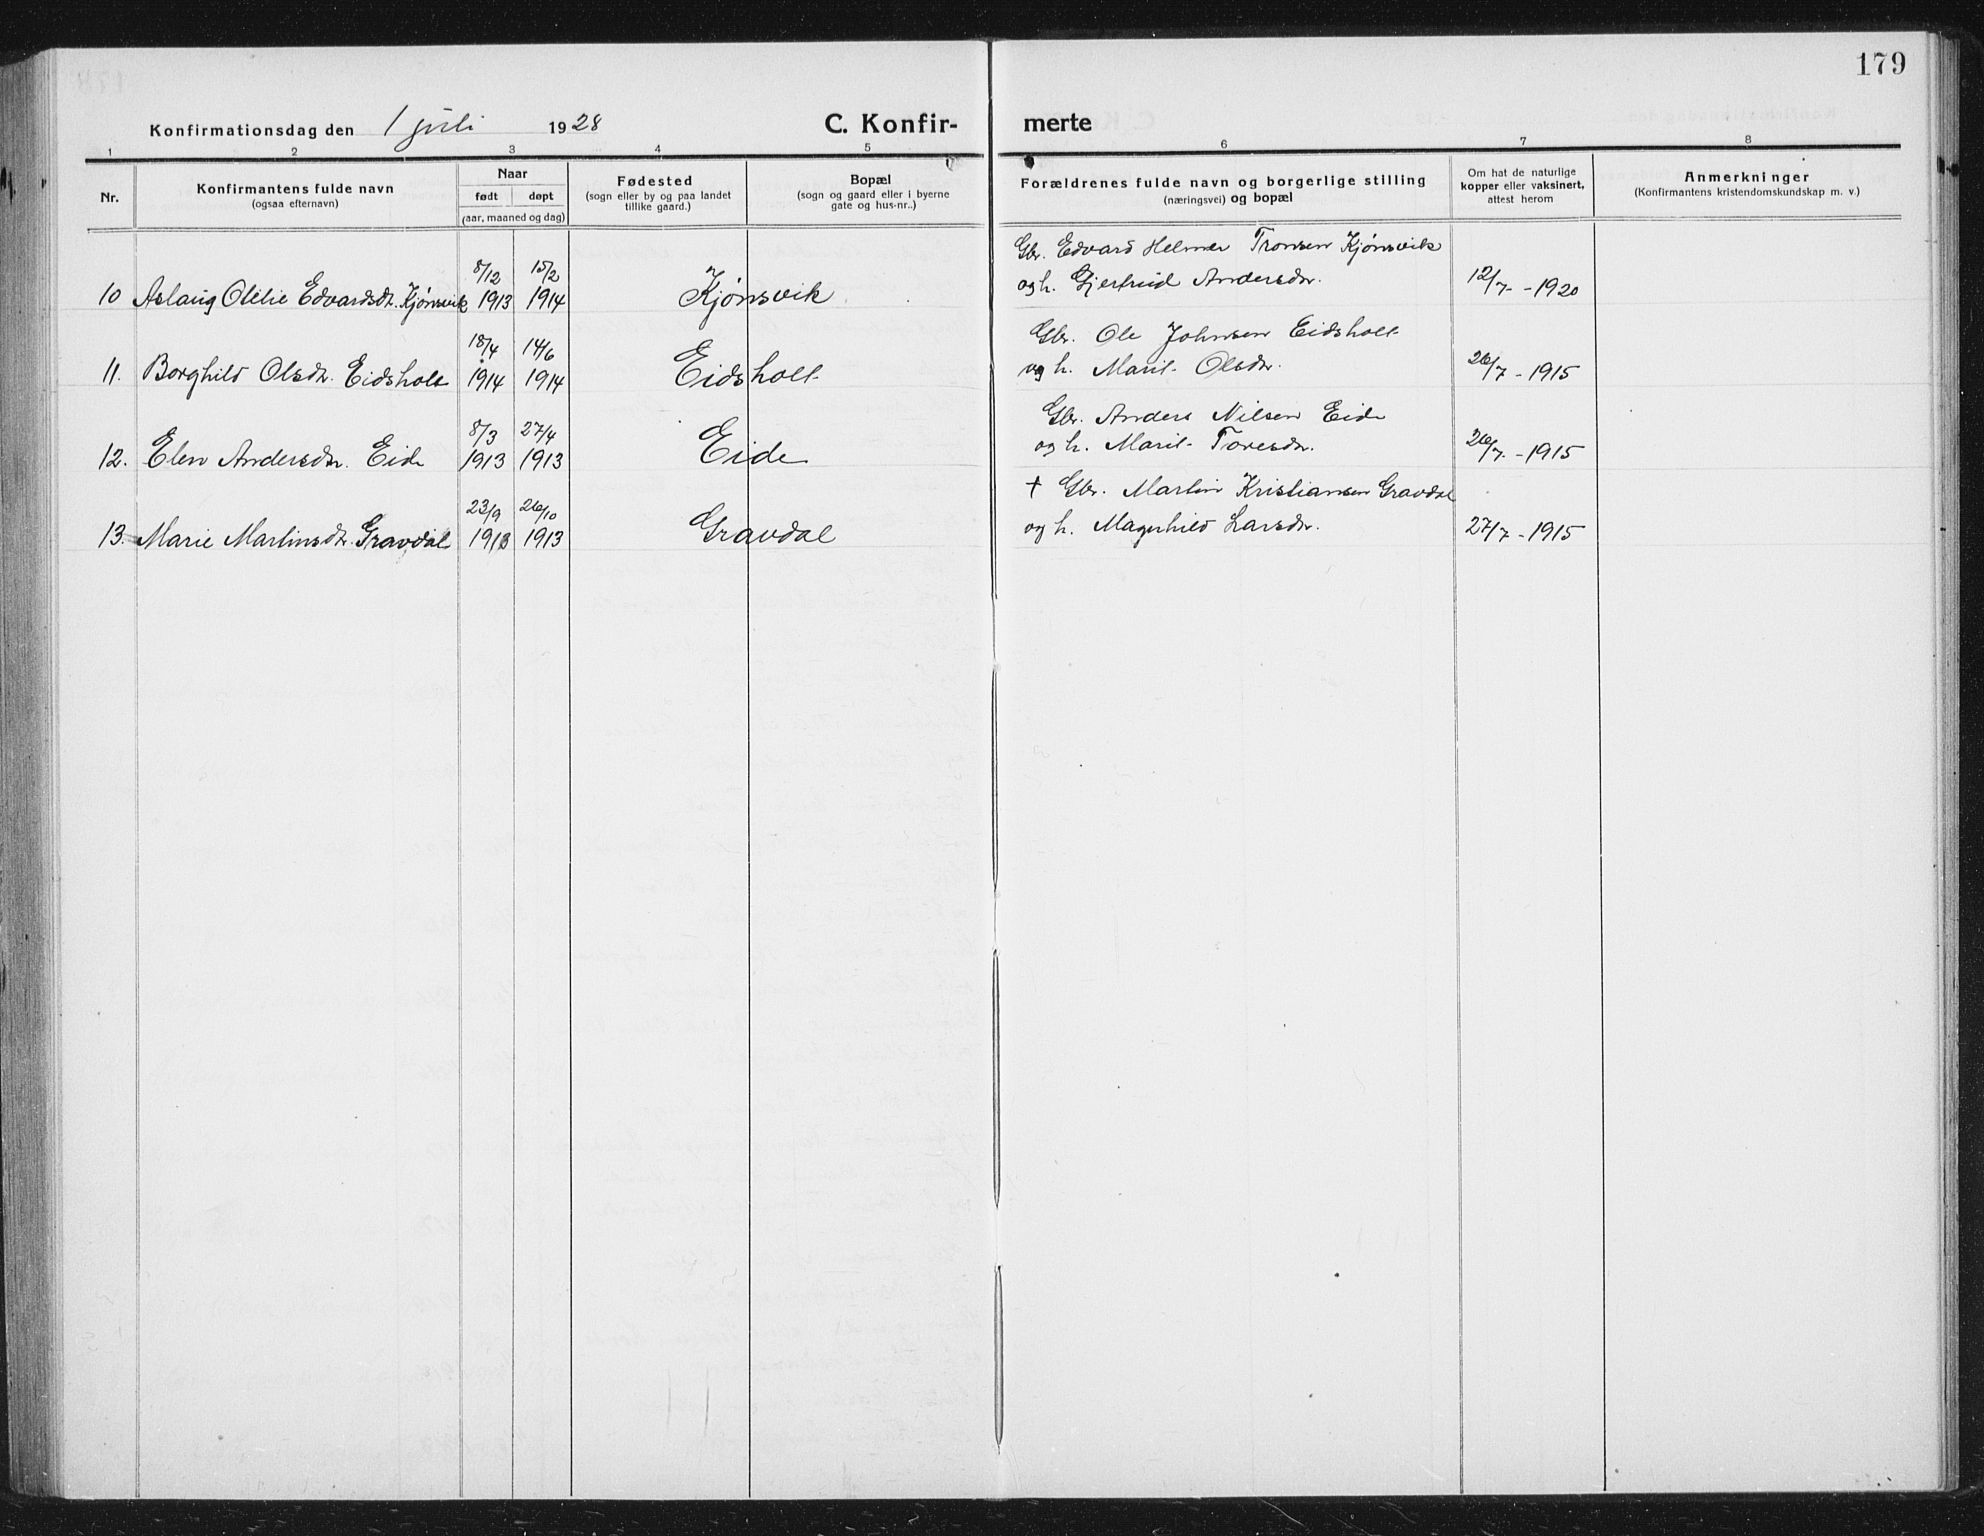 179
Konfirmationsdag den 1 juli 1928
C. Konfirmerte
1 2 3 4 5 6 7 8
Nr.
Konfirmantens fulde navn
(ogsaa efternavn)
Naar
født døpt
(aar, maaned og dag)
Fødested
(sogn eller by og paa landet
tillike gaard.)
Bopæl
(sogn og gaard eller i byerne
gate og hus-nr.)
Forældrenes fulde navn og borgerlige stilling
(næringsvei) og bopæl
Om hat de naturlige
kopper eller vaksinert,
attest herom
Anmerkninger
(Konfirmantens kristendomskundskap m. v.)
8/12 15/2 Gbr. Edvard Helmer Tronsen Kjønsvik
10 Aslaug Otilie Edvardsdr. Kjønsvik 1913 1914 Kjønsvik og h. Gjertrud Andersdr. 12/7 - 1920
18/4 14/6 Gbr. Ole Johnsen Eidsholt
11. Borghild Olsdr. Eidsholt 1914 1914 Eidsholt og h. Marit Olsdr. 26/7 - 1915
8/3 27/4 Gbr. Anders Nilsen Eide
12. Elen Andersdr. Eide 1913 1913 Eide og h. Marit Toresdr. 26/7 - 1915
23/9 26/10 † Gbr. Martin Kristiansen Gravdal
13. Marie Martinsdr. Gravdal 1913 1913 Gravdal og h. Magnhild Larsdr. 27/7 - 1915